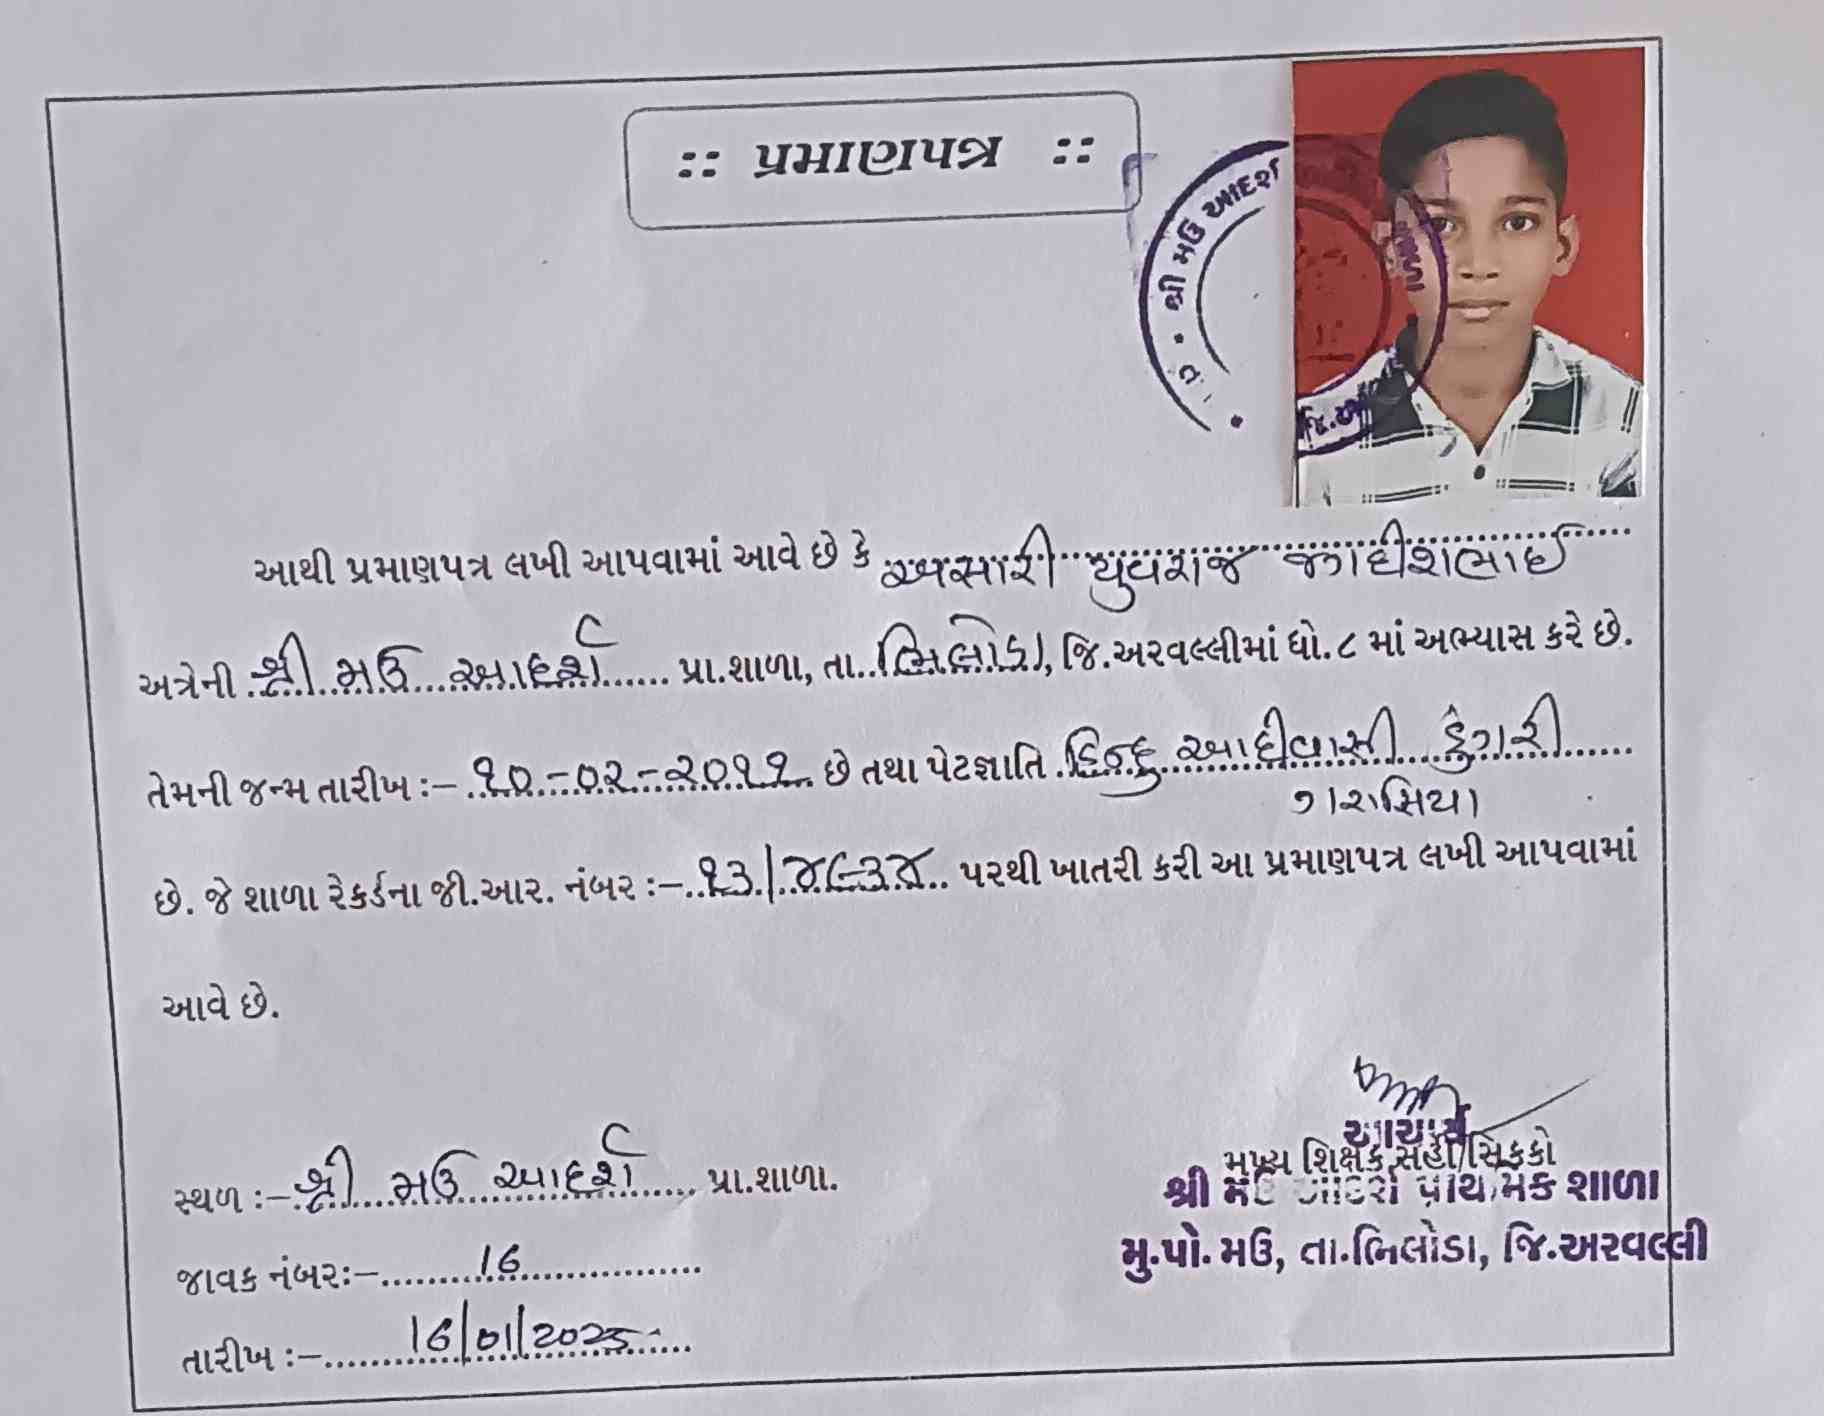 :: પ્રમાણપત્ર ::
શ્રી મઉ આદર્શ
જિ.અ
આથી પ્રમાણપત્ર લખી આપવામાં આવે છે કે અસારી યુવરાજ જગદીશભાઈ
અત્રેની શ્રી મઉ આદર્શ પ્રા.શાળા, તા. ભિલોડા, જિ.અરવલ્લીમાં ધો.૮ માં અભ્યાસ કરે છે.
તેમની જન્મ તારીખ :- ૧૦-૦૨-૨૦૧૧ છે તથા પેટજ્ઞાતિ હિન્દુ આદીવાસી ડુંગરી
ગરાસિયા
છે. જે શાળા રેકર્ડના જી.આર. નંબર :- ૧૩/૪૮૩૪ પરથી ખાતરી કરી આ પ્રમાણપત્ર લખી આપવામાં
આવે છે.
આચાર્ય
મુખ્ય શિક્ષક સહી/સિક્કો
સ્થળ :- શ્રી મઉ આદર્શ પ્રા.શાળા.
શ્રી મઉ આદર્શ પ્રાથમિક શાળા
જાવક નંબર:- 16
મુ.પો. મઉ, તા.ભિલોડા, જિ.અરવલ્લી
તારીખ :- 16/01/2025